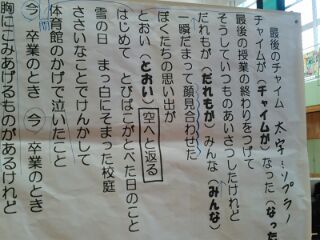 最後のチャイム 太字…ソプラノ
チャイムが(チャイムが)なった(なった
最後の授業の終わりをつげて
そうしていつものあいさつしたけれど
だれもが(だれもが)みんな(みんな)
一瞬だまって顔見合わせた
ぼくたちの思い出が
とおい(とおい)空へと返る
はじめて とびばこがとべた日のこと
雪の日 まっ白にそまった校庭
ささいなことでけんかして
体育館のかげで泣いたこと
今 卒業のとき 今 卒業のとき
胸にこみあげるものがあるけれど